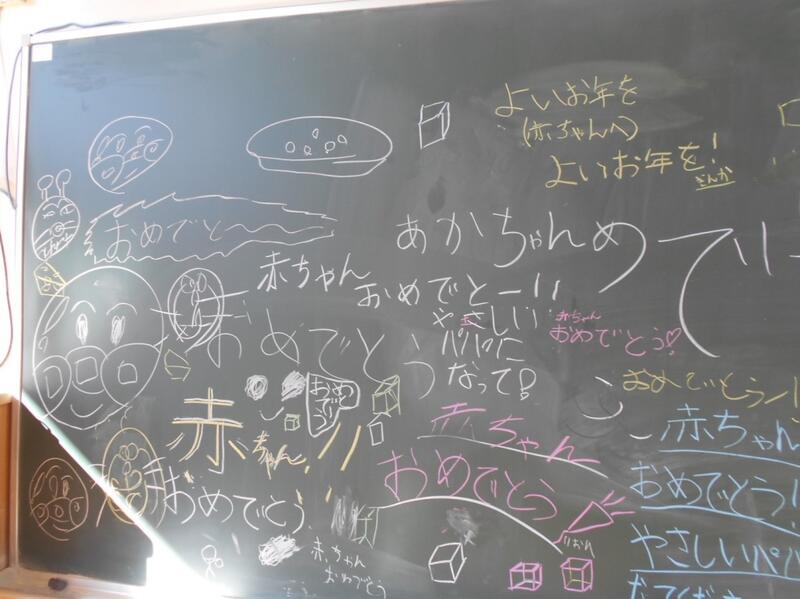 よいお年を
(赤ちゃんへ)
よいお年を!
おめでとう
あかちゃんめでと
赤ちゃん
おめでとー!!
やさしい
パパに
なって!
赤ちゃん
おめでとう♡
おめでとう
おめでとう!
赤ちゃん!!
おめでとう
赤ちゃん
おめでとう
赤ちゃん
おめでとう!
やさしいパパ
なってください
赤ちゃん
おめでとう